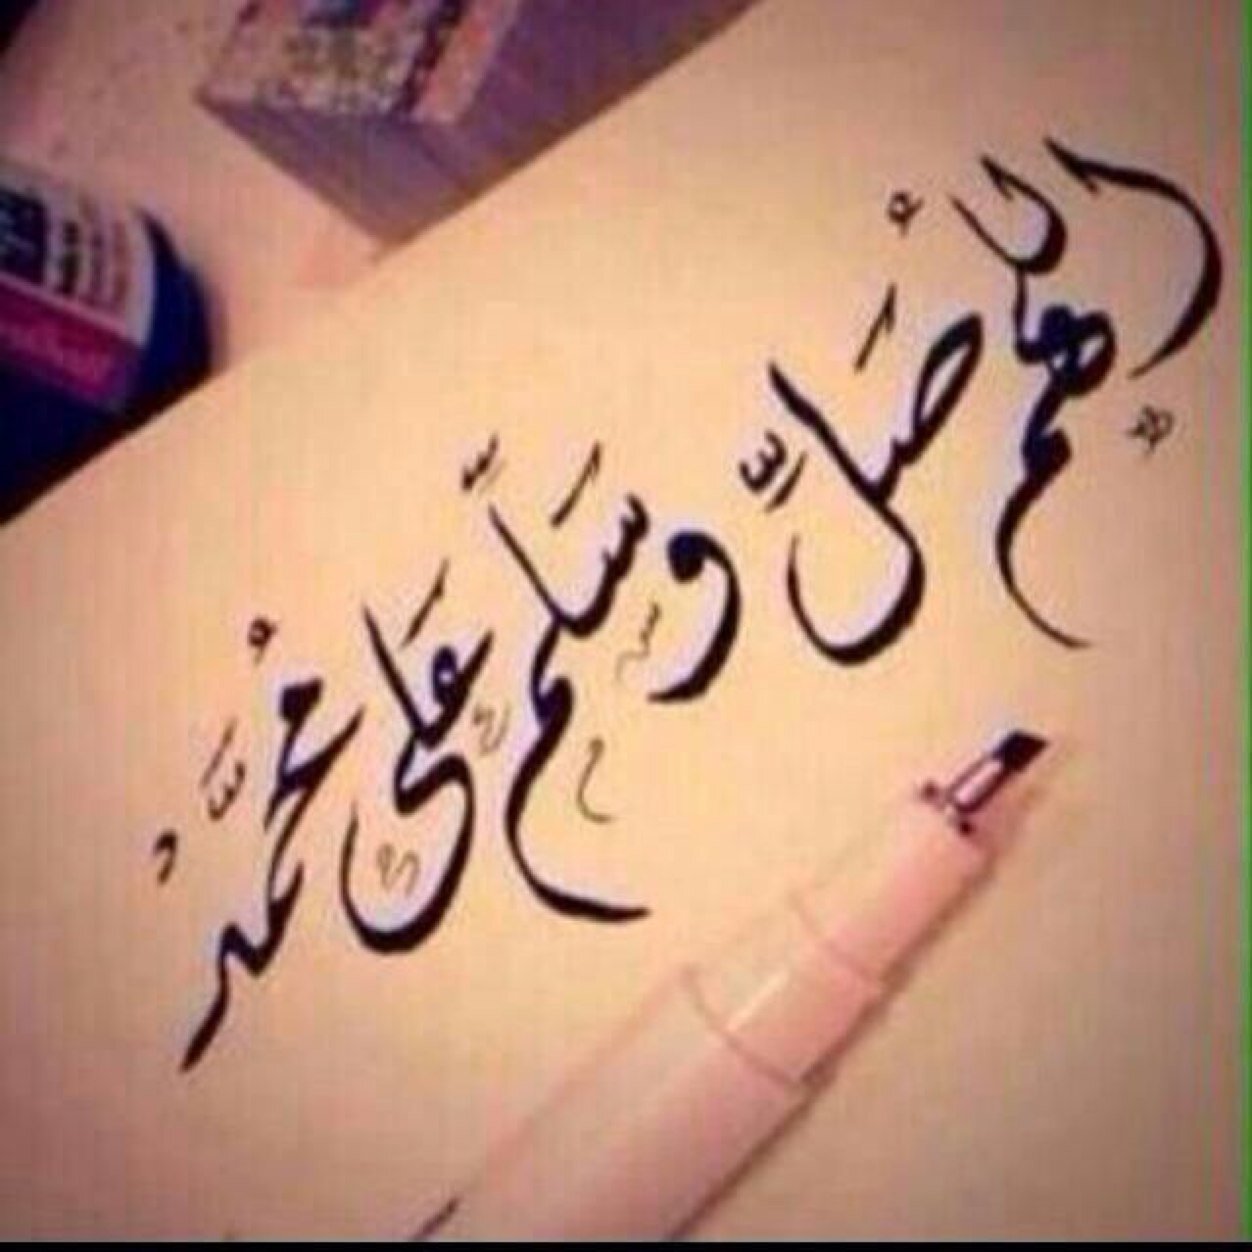 اللهُم صَلِّ وسَلِّم عَلى مُحمَّد